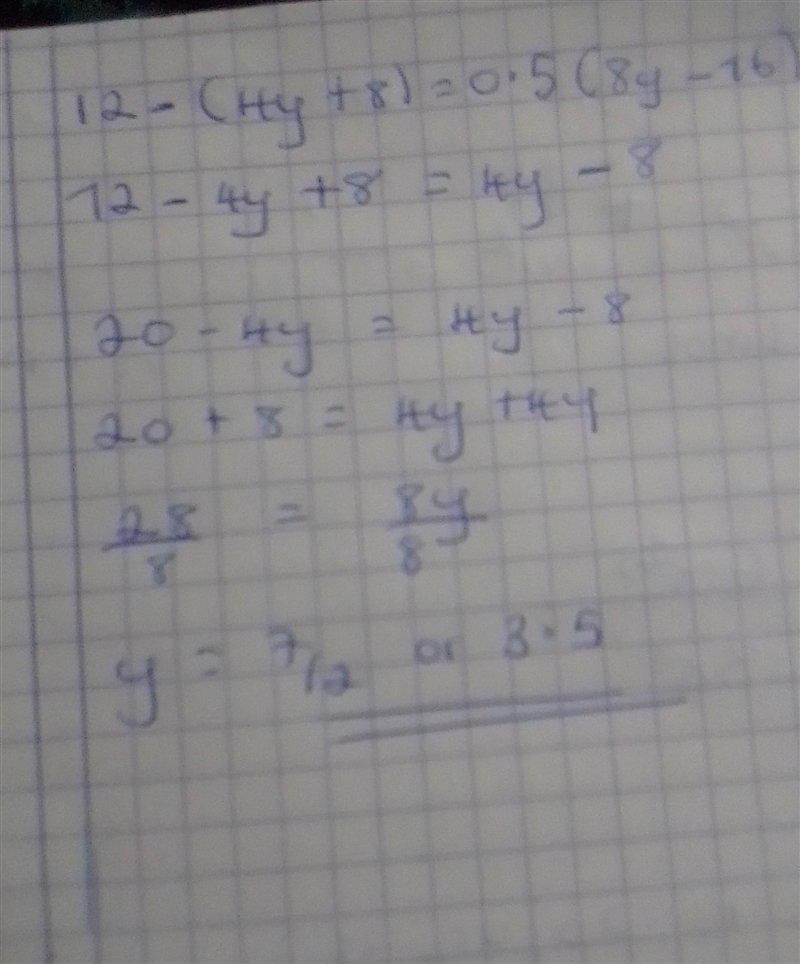 12 - (4y + 8) = 0.5 (8y - 16)
12 - 4y + 8 = 4y - 8
20 - 4y = 4y - 8
20 + 8 = 4y + 4y
28/8 = 8y/8
y = 7/2 or 3.5